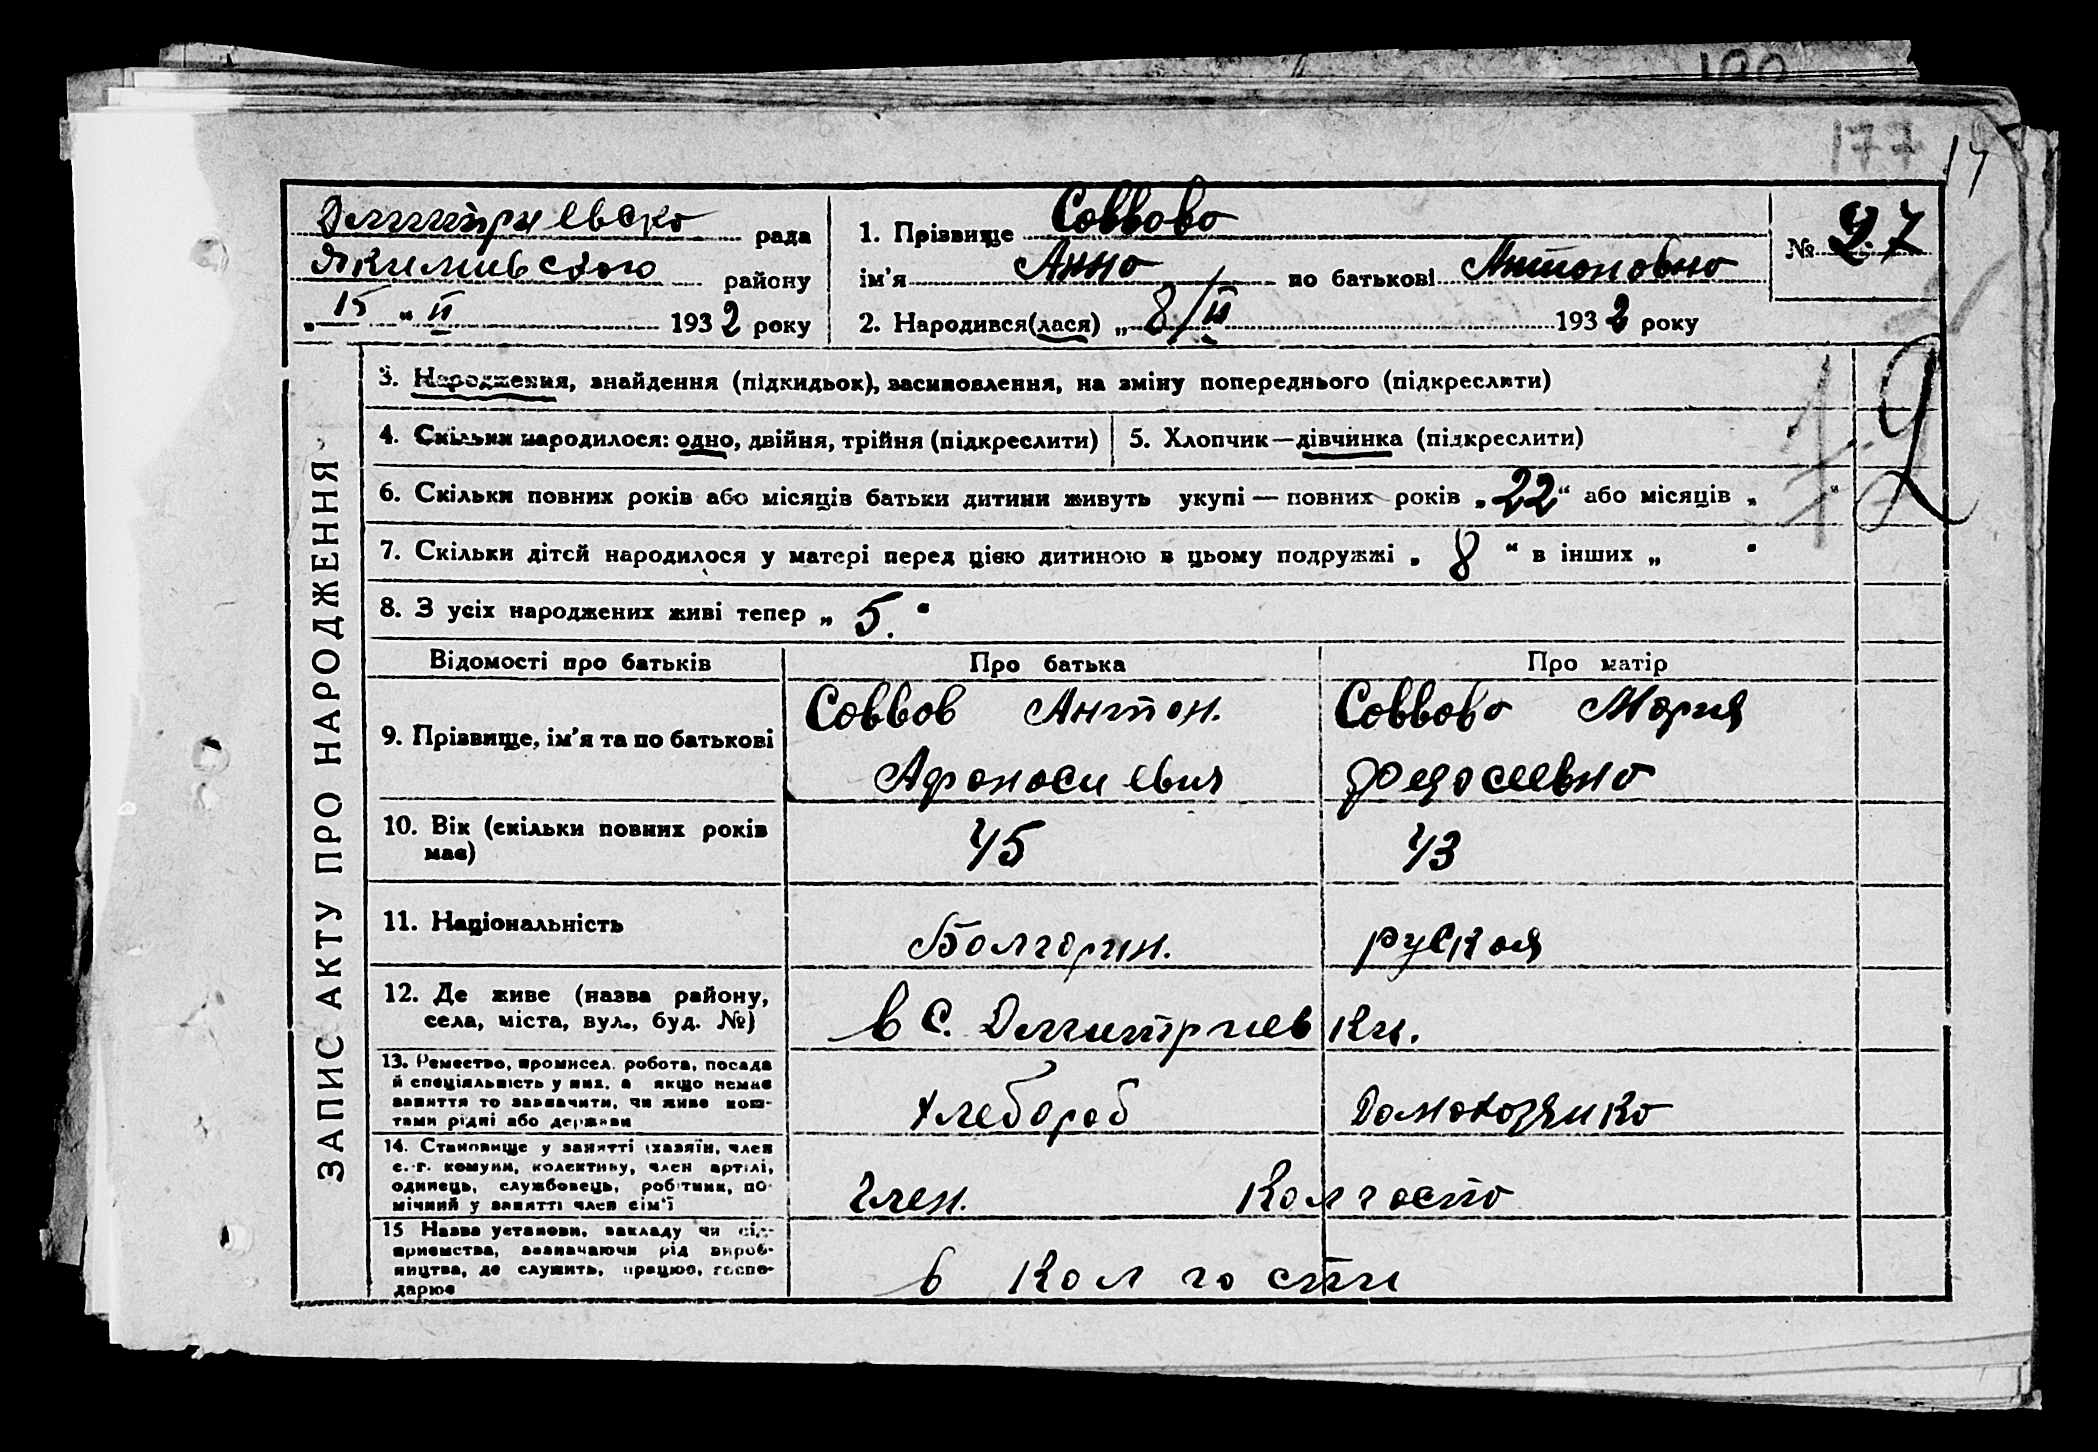 177 17
Дмитриевска рада
Якимивского району
„ 15 “ II 1932 року
1. Прізвище Соввова
ім’я Анна по батькові Антоновна
2. Народився(лася) „ 8/II 1932 року
№ 27
ЗАПИС АКТУ ПРО НАРОДЖЕННЯ
3. Народження, знайдення (підкидьок), засиновлення, на зміну попереднього (підкреслити)
4. Скільки народилося: одно, двійня, трійня (підкреслити) 5. Хлопчик—дівчинка (підкреслити)
6. Скільки повних років або місяців батьки дитини живуть укупі — повних років „ 22 “ або місяців „ “
7. Скільки дітей народилося у матері перед цією дитиною в цьому подружжі „ 8 “ в інших „ “
8. З усіх народжених живі тепер „ 5. “
Відомості про батьків Про батька Про матір
9. Прізвище, ім’я та по батькові Соввов Антон. Соввова Мария
Афонасиевич Федосеевна
10. Вік (скільки повних років має) 45 43
11. Національність Болгорин. руская
12. Де живе (назва району, села, міста, вул., буд. №) в с. Дмитриевки.
13. Ремество, промисел, робота, посада
й спеціяльність у них, а якщо немає
заняття то зазначити, чи живе кош-
тами рідні або держави хлебороб Домохозяйка
14. Становище у занятті (хазяїн, член
с.-г. комуни, колективу, член артілі,
одинець, службовець, робітник, по-
мічний у занятті член сім’ї член. Колгоспо
15 Назва установи, закладу чи під-
приємства, зазначаючи рід вироб-
ництва, де служить, працює, госпо-
дарює в Колгоспи